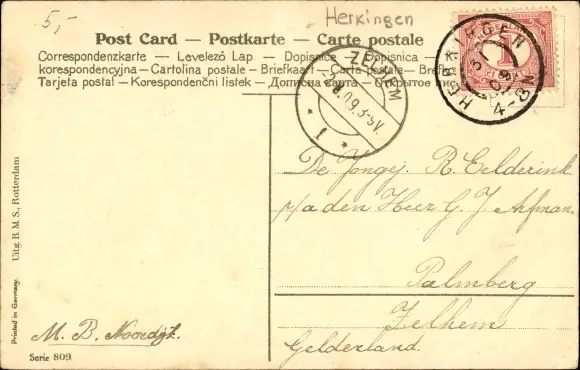 5,-
Herkingen
Post Card — Postkarte — Carte postale
Correspondenzkarte — Levelező Lap — Dopisnice — Dopisnica —
korespondencyjna — Cartolina postale — Briefkaart — Carta postale —
Tarjeta postal — Korespondenční listek — Дописна карта — Открытое
HERKINGEN
4-8N
ZELHEM
3-5V.
1
De Jongej. R. Eelderink
p/a den Heer G. J. Arfman.
Palmberg
Zelhem
Gelderland.
M. B. Noordijk.
Uitg. B. M. S., Rotterdam
Printed in Germany.
Serie 809.